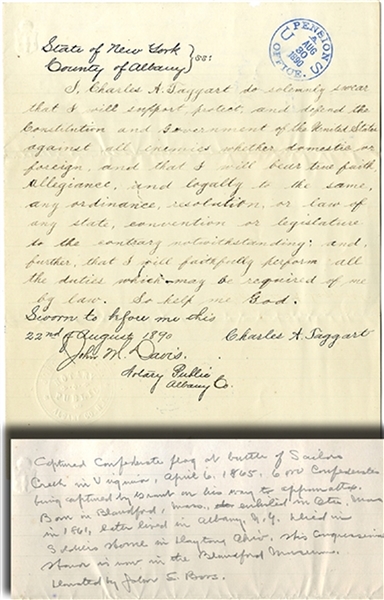 State of New York
County of Albany } ss:
U.S. PENSION OFFICE
AUG
30
1890
I, Charles A. Taggart do solemnly swear
that I will support, protect, and defend the
Constitution and Government of the United States
against all enemies whether domestic or
foreign, and that I will bear true faith,
allegiance, and loyalty to the same,
any ordinance, resolution, or law of
any state, convention or legislature
to the contrary notwithstanding: and,
further, that I will faithfully perform all
the duties which may be required of me
by law. So help me God.
Sworn to before me this
22nd of August 1890
Charles A. Taggart
John M. Davis.
Notary Public
Albany Co.
Captured Confederate flag at battle of Sailors
Creek in Virginia, April 6, 1865. 6000 Confederates
being captured by Grant on his way to Appomattox.
Born in Blandford, Mass. enlisted in Otis, Mass
in 1861, later lived in Albany, N.Y. Died in
Soldiers Home in Dayton, Ohio. His Congressional
Honor is now in the Blandford Museum.
Donated by